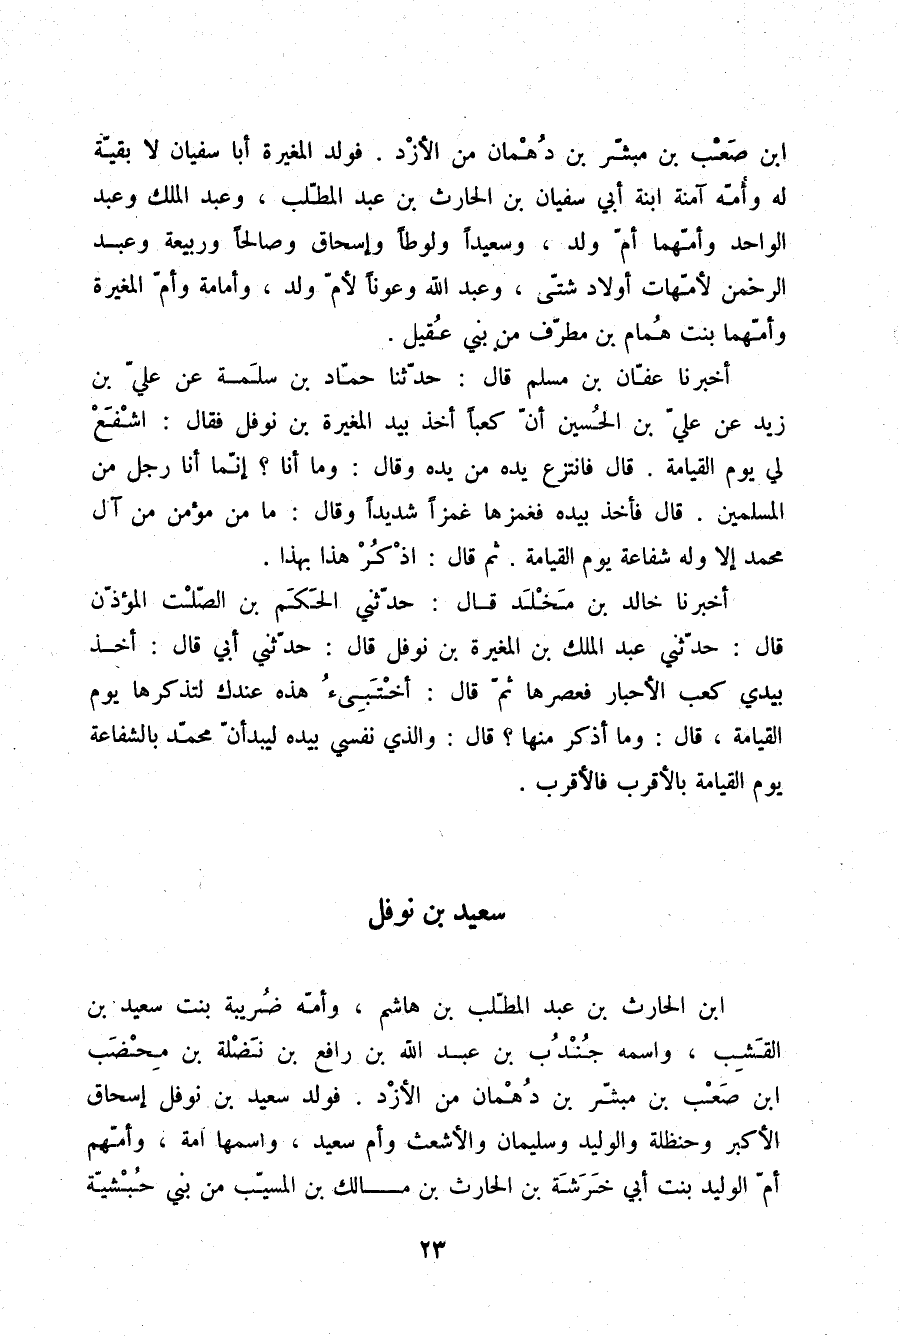 ابن صَعْب بن مبشّر بن دُهْمان من الأزْد . فولد المغيرة أبا سفيان لا بقيّة
له وأُمّه آمنة ابنة أبي سفيان بن الحارث بن عبد المطّلب ، وعبد الملك وعبد
الواحد وأمّهما أمّ ولد ، وسعيداً ولوطاً وإسحاق وصالحاً وربيعة وعبـد
الرحمن لأمّهات أولاد شتّى ، وعبد الله وعوناً لأمّ ولد ، وأمامة وأمّ المغيرة
وأمّهما بنت هُمام بن مطرّف من بني عُقيل .
أخبرنا عفّان بن مسلم قال : حدّثنا حمّاد بن سلَمـة عن عليّ بن
زيد عن عليّ بن الحُسين أنّ كعباً أخذ بيد المغيرة بن نوفل فقال : اشْفَعْ
لي يوم القيامة . قال فانتزع يده من يده وقال : وما أنا ؟ إنّما أنا رجل من
المسلمين . قال فأخذ بيده فغمزها غمزاً شديداً وقال : ما من مؤمن من آل
محمد إلا وله شفاعة يوم القيامة . ثم قال : اذْكُرْ هذا بهذا .
أخبرنا خالد بن مَخْلَد قـال : حدّثني الحَكَم بن الصّلْت المؤذّن
قال : حدّثني عبد الملك بن المغيرة بن نوفل قال : حدّثني أبي قال : أخـذ
بيدي كعب الأحبار فعصرها ثمّ قال : أخْتَبِـىءُ هذه عندك لتذكرها يوم
القيامة ، قال : وما أذكر منها ؟ قال : والذي نفسي بيده ليبدأنّ محمّد بالشفاعة
يوم القيامة بالأقرب فالأقرب .
سعيد بن نوفل
ابن الحارث بن عبد المطّلب بن هاشم ، وأمّه ضُريبة بنت سعيد بن
القَشِب ، واسمه جُنْدُب بن عبـد الله بن رافع بن نَضْلة بن مِحْضَب
ابن صَعْب بن مبشّر بن دُهْمان من الأزْد . فولد سعيد بن نوفل إسحاق
الأكبر وحنظلة والوليد وسليمان والأشعث وأم سعيد ، واسمها امة ، وأمّهم
أمّ الوليد بنت أبي خَرَشَة بن الحارث بن مـــالك بن المسيّب من بني حُبْشيّة
٢٣